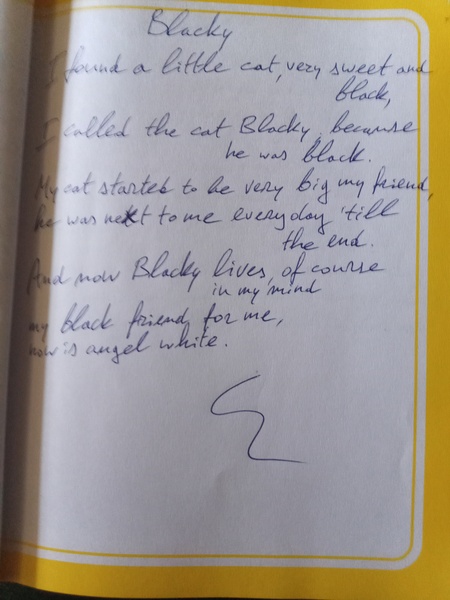 Blacky
I found a little cat, very sweet and
black,
I called the cat Blacky, because
he was black.
My cat started to be very big my friend,
he was next to me everyday 'till
the end.
And now Blacky lives, of course
in my mind
my black friend, for me,
now is angel white.